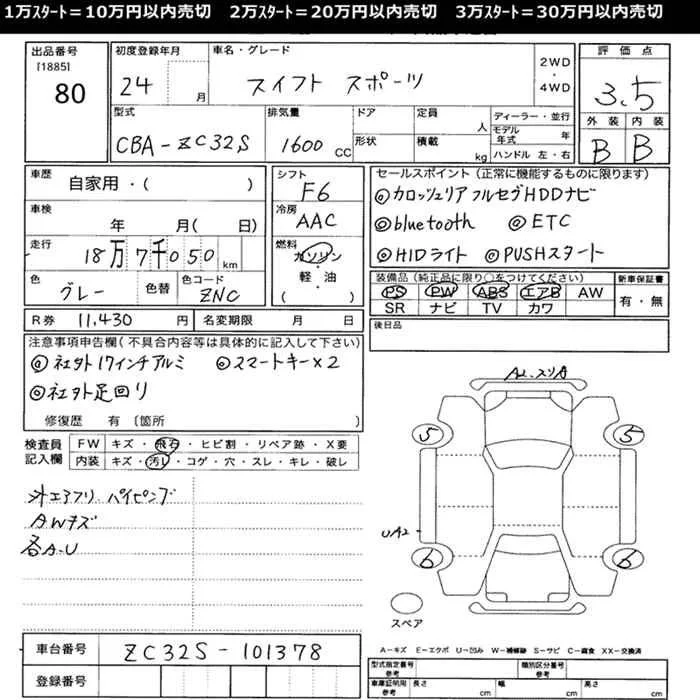 1万スタート=10万円以内売切　2万スタート=20万円以内売切　3万スタート=30万円以内売切
出品番号
[1885]
80
初度登録年月
24 月
車名・グレード
スイフト スポーツ
2WD
・
4WD
評価点
3.5
外装 内装
B B
型式
CBA-ZC32S
排気量
1600 CC
ドア
形状
定員
人
積載
kg
ディーラー・並行
モデル年式 年
ハンドル 左・右
車歴
自家用・( )
車検
年 月( 日)
走行
18万7千050 km
色
グレー
色替
色コード
ZNC
シフト
F6
冷房
AAC
燃料
ガソリン
軽・油
( )
セールスポイント (正常に機能するものに限ります)
◎カロッツェリア フルセグHDDナビ
◎bluetooth ◎ETC
◎HIDライト ◎PUSHスタート
装備品 (純正品に限り○をつけてください)
PS PW ABS エアB AW
SR ナビ TV カワ
新車保証書
有・無
後日品
R券 11,430 円
名変期限 月 日
注意事項申告欄 (不具合内容等は具体的に記入して下さい)
◎社外17インチアルミ ◎スマートキー×2
◎社外足回り
修復歴 有 〔箇所 〕
検査員
記入欄
FW キズ・飛石・ヒビ割・リペア跡・X要
内装 キズ・汚レ・コゲ・穴・スレ・キレ・破レ
外エアフリ. パイピング
AWキズ
各A-U
5
5
UA2
6
6
スペア
A-キズ E-エクボ U-凹み W-補修跡 S-サビ C-腐食 XX-交換済
車台番号
ZC32S-101378
登録番号
型式指定番号
参考
類別区分番号
参考
車庫証明用
参考
長さ cm
幅 cm
高さ cm